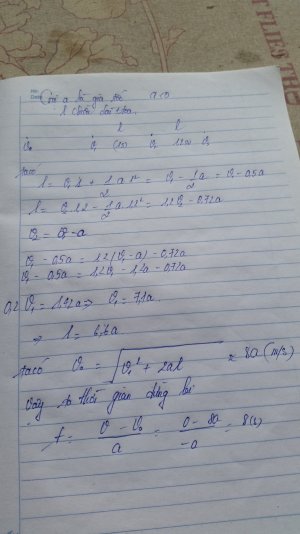 Gọi a là gia tốc a>0
l chiều dài toa
l l
v₀ v₁ (1s) v₂ 1,2s v₃
ta có
l = v₁t + 1/2 a t² = v₁ - 1/2 a = v₁ - 0,5a
l = v₂ 1,2 - 1/2 a t'² = 1,2v₂ - 0,72a
v₂ = v₁ - a
v₁ - 0,5a = 1,2(v₁ - a) - 0,72a
v₁ - 0,5a = 1,2v₁ - 1,2a - 0,72a
0,2 v₁ = 1,42a ⇒ v₁ = 7,1a
⇒ l = 6,6a
ta có v₀ = √(v₁² + 2al) ≈ 8a (m/s)
Vậy thời gian dừng lại
t = (v - v₀)/a = (0 - 8a)/(-a) = 8(s)